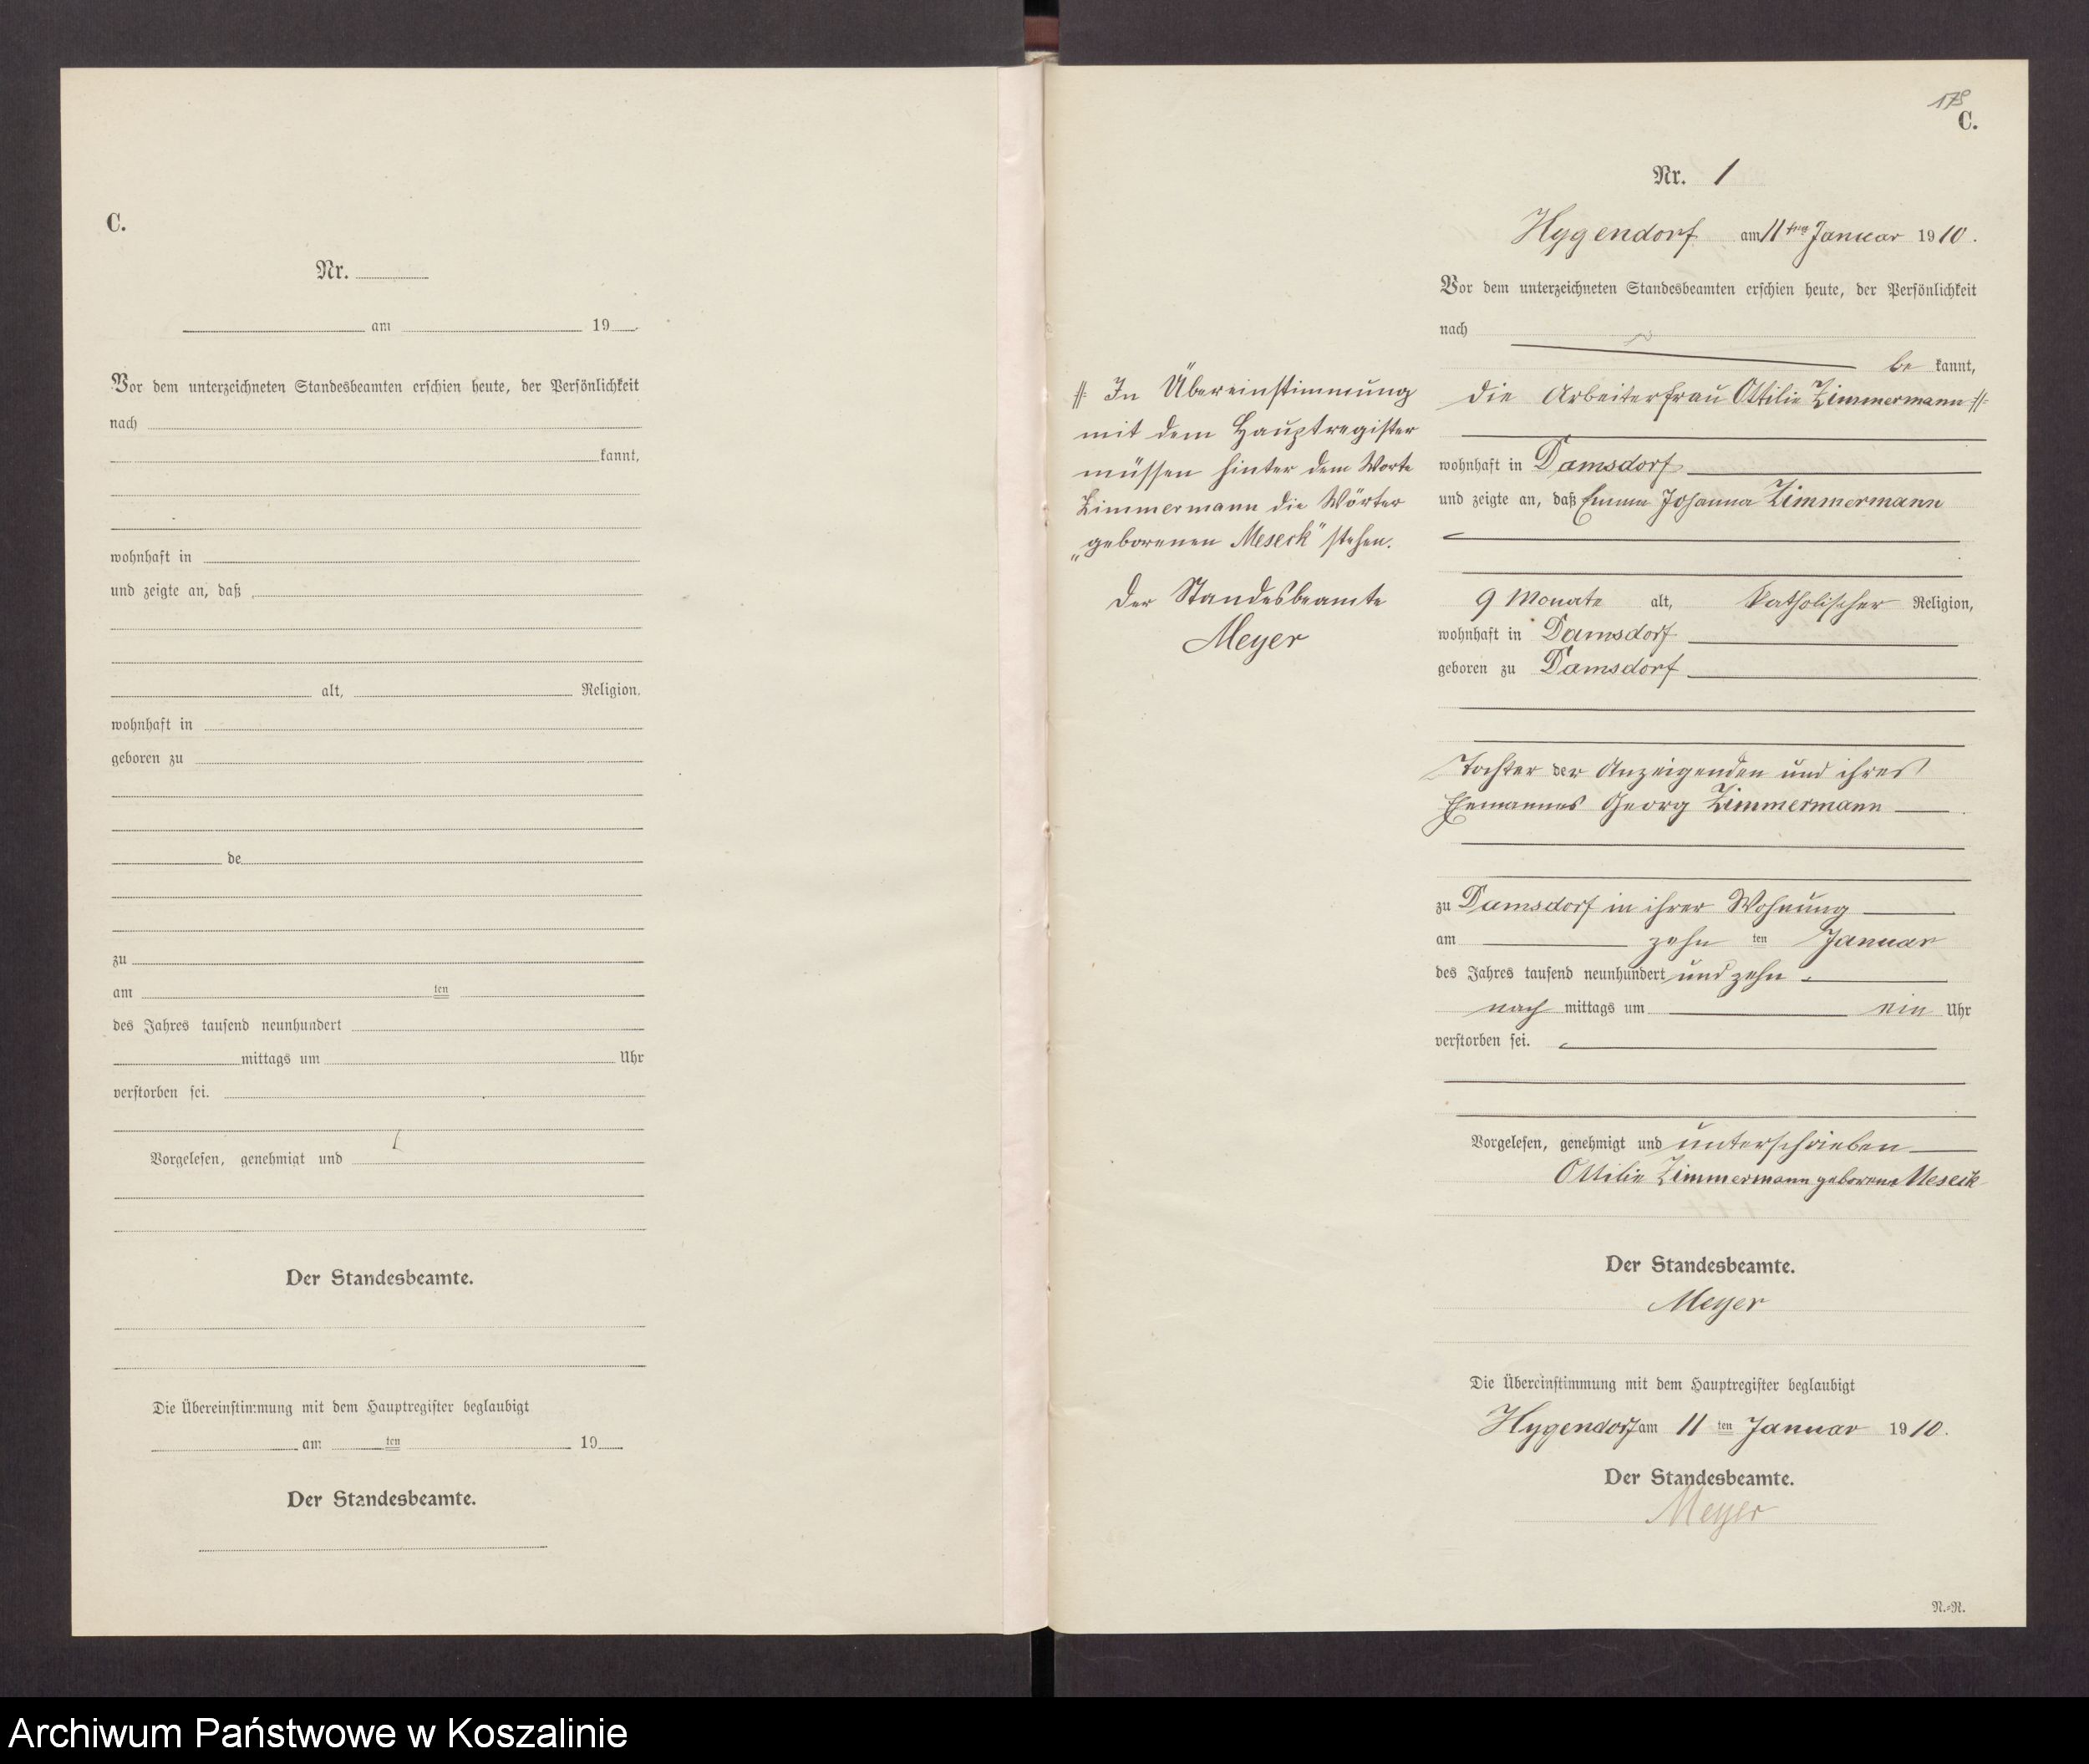 C.
Nr.
am 19 .
Vor dem unterzeichneten Standesbeamten erschien heute, der Persönlichkeit
nach
kannt,
wohnhaft in
und zeigte an, daß
alt, Religion,
wohnhaft in
geboren zu
de
zu
am ten
des Jahres tausend neunhundert
mittags um Uhr
verstorben sei.
Vorgelesen, genehmigt und
Der Standesbeamte.
Die Übereinstimmung mit dem Hauptregister beglaubigt
am ten 19
Der Standesbeamte.
C.
Nr. 1
Hygendorf am 11ten Januar 1910.
Vor dem unterzeichneten Standesbeamten erschien heute, der Persönlichkeit
nach
be kannt,
die Arbeiterfrau Ottilie Zimmermann #
wohnhaft in Damsdorf
und zeigte an, daß Emma Johanna Zimmermann
9 Monate alt, katholischer Religion,
wohnhaft in Damsdorf
geboren zu Damsdorf
Tochter der Anzeigenden und ihres
Ehemannes Georg Zimmermann
zu Damsdorf in ihrer Wohnung
am zehn ten Januar
des Jahres tausend neunhundert und zehn
nach mittags um ein Uhr
verstorben sei.
Vorgelesen, genehmigt und unterschrieben
Ottilie Zimmermann geborene Meseck
Der Standesbeamte.
Meyer
Die Übereinstimmung mit dem Hauptregister beglaubigt
Hygendorf am 11 ten Januar 1910.
Der Standesbeamte.
Meyer
N.=R.
# In Übereinstimmung
mit dem Hauptregister
müssen hinter dem Worte
Zimmermann die Wörter
„geborenen Meseck“ stehen.
Der Standesbeamte
Meyer
Archiwum Państwowe w Koszalinie